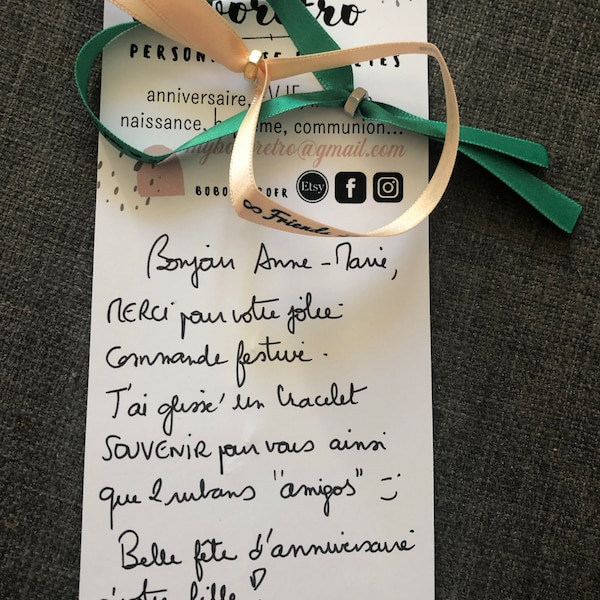 PERSON
anniversaire, VJF,
naissance, b me, communion...
retro@gmail.com
BOBO DER Etsy f
∞ Friends
Bonjour Anne-Marie,
MERCI pour votre jolie
commande festive.
J'ai glissé un bracelet
SOUVENIR pour vous ainsi
que 2 rubans "amigos" :)
Belle fête d'anniversaire
à votre fille ♡